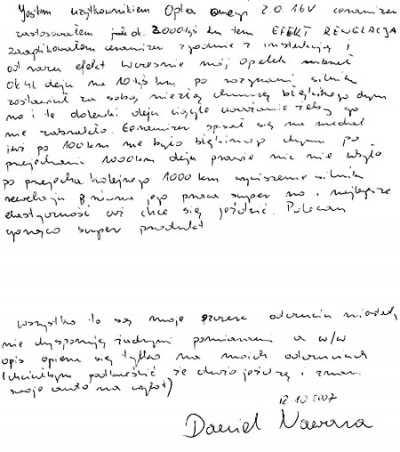 Jestem użytkownikiem Opla omegi 2.0 16V ceramizer
zastosowałem już od 2000 km ten EFEKT REWELACJA
zaaplikowałem ceramizer zgodnie z instrukcją i
od razu efekt wcześnie mój opelek
ok 4L oleju na 10 tyś km, po rozgrzaniu silnika
zostawiał za sobą niezłą chmurę błękitnego dymu
no i te dolewki oleju ciągłe uważanie żeby go
nie zabrakło. Ceramizer spisał się na medal
już po 100 km nie było błękitnego dymu po
przejechaniu 1000 km oleju prawie nic nie ubyło
po przejechaniu kolejnego 1000 km wyciszenie silnika
rewelacja równa jego praca super no i najlepsze
elastyczność aż chce się jeździć. Polecam
gorąco super produkt
wszystko to są moje szczere odczucia niestety
nie dysponuję żadnymi pomiarami a w/w
opis opiera się tylko na moich odczuciach
(chciałbym podkreślić że dużo jeżdżę i znam
swoje auto na wylot)
12.10.2007
Daniel Nawara